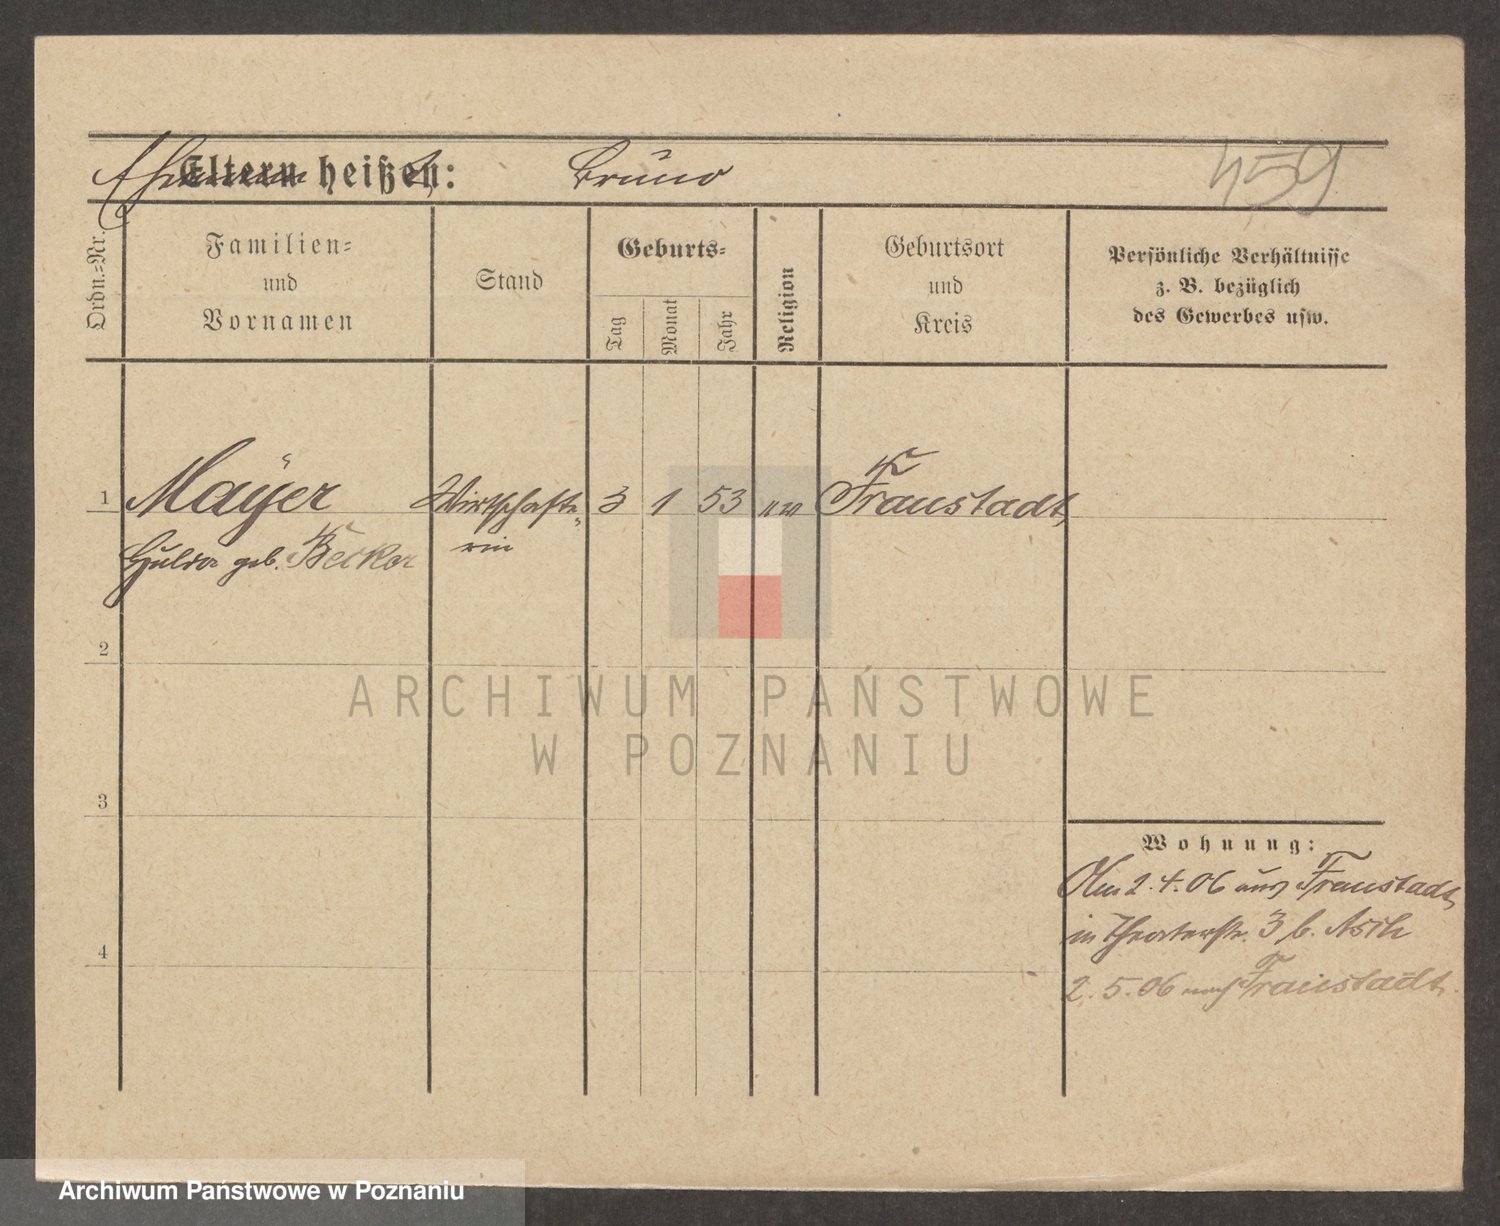 Eltern heißen: Bruno
459
Ordn.=Nr.
Familien=
und
Vornamen
Stand
Geburts=
Tag
Monat
Jahr
Religion
Geburtsort
und
Kreis
Persönliche Verhältnisse
z. B. bezüglich
des Gewerbes usw.
1 Mayer Wirtschafte= 3 1 53 Fraustadt
Hulda geb. Becker rin
2
ARCHIWUM PAŃSTWOWE
W POZNANIU
3
Wohnung:
Am 2.4.06 aus Fraustadt
in Theaterstr. 3 b. Asch
4
2.5.06 nach Fraustadt.
Archiwum Państwowe w Poznaniu